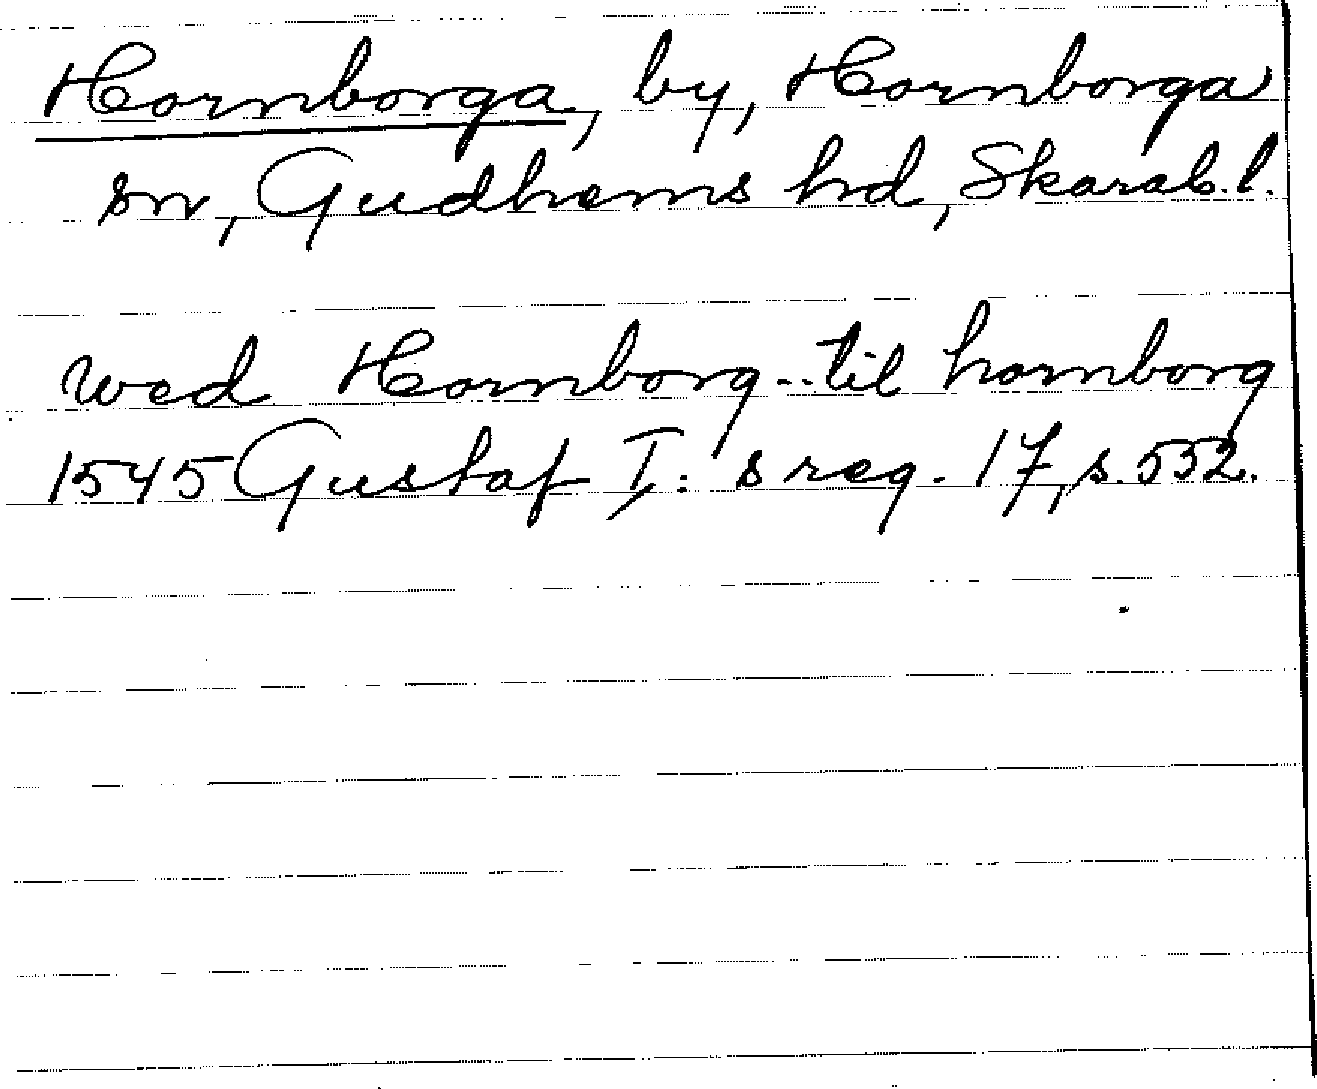 Hornborga, by, Hornborga
sn, Gudhems hd, Skarab. l.
wed Hornborg.. til hornborg
1545 Gustaf I:s reg. 17, s. 532.